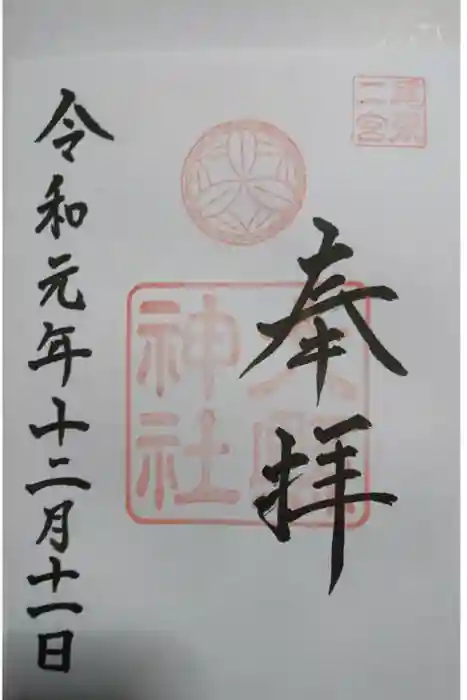 尾張
二宮
奉拝
大縣
神社
令和元年十二月十一日